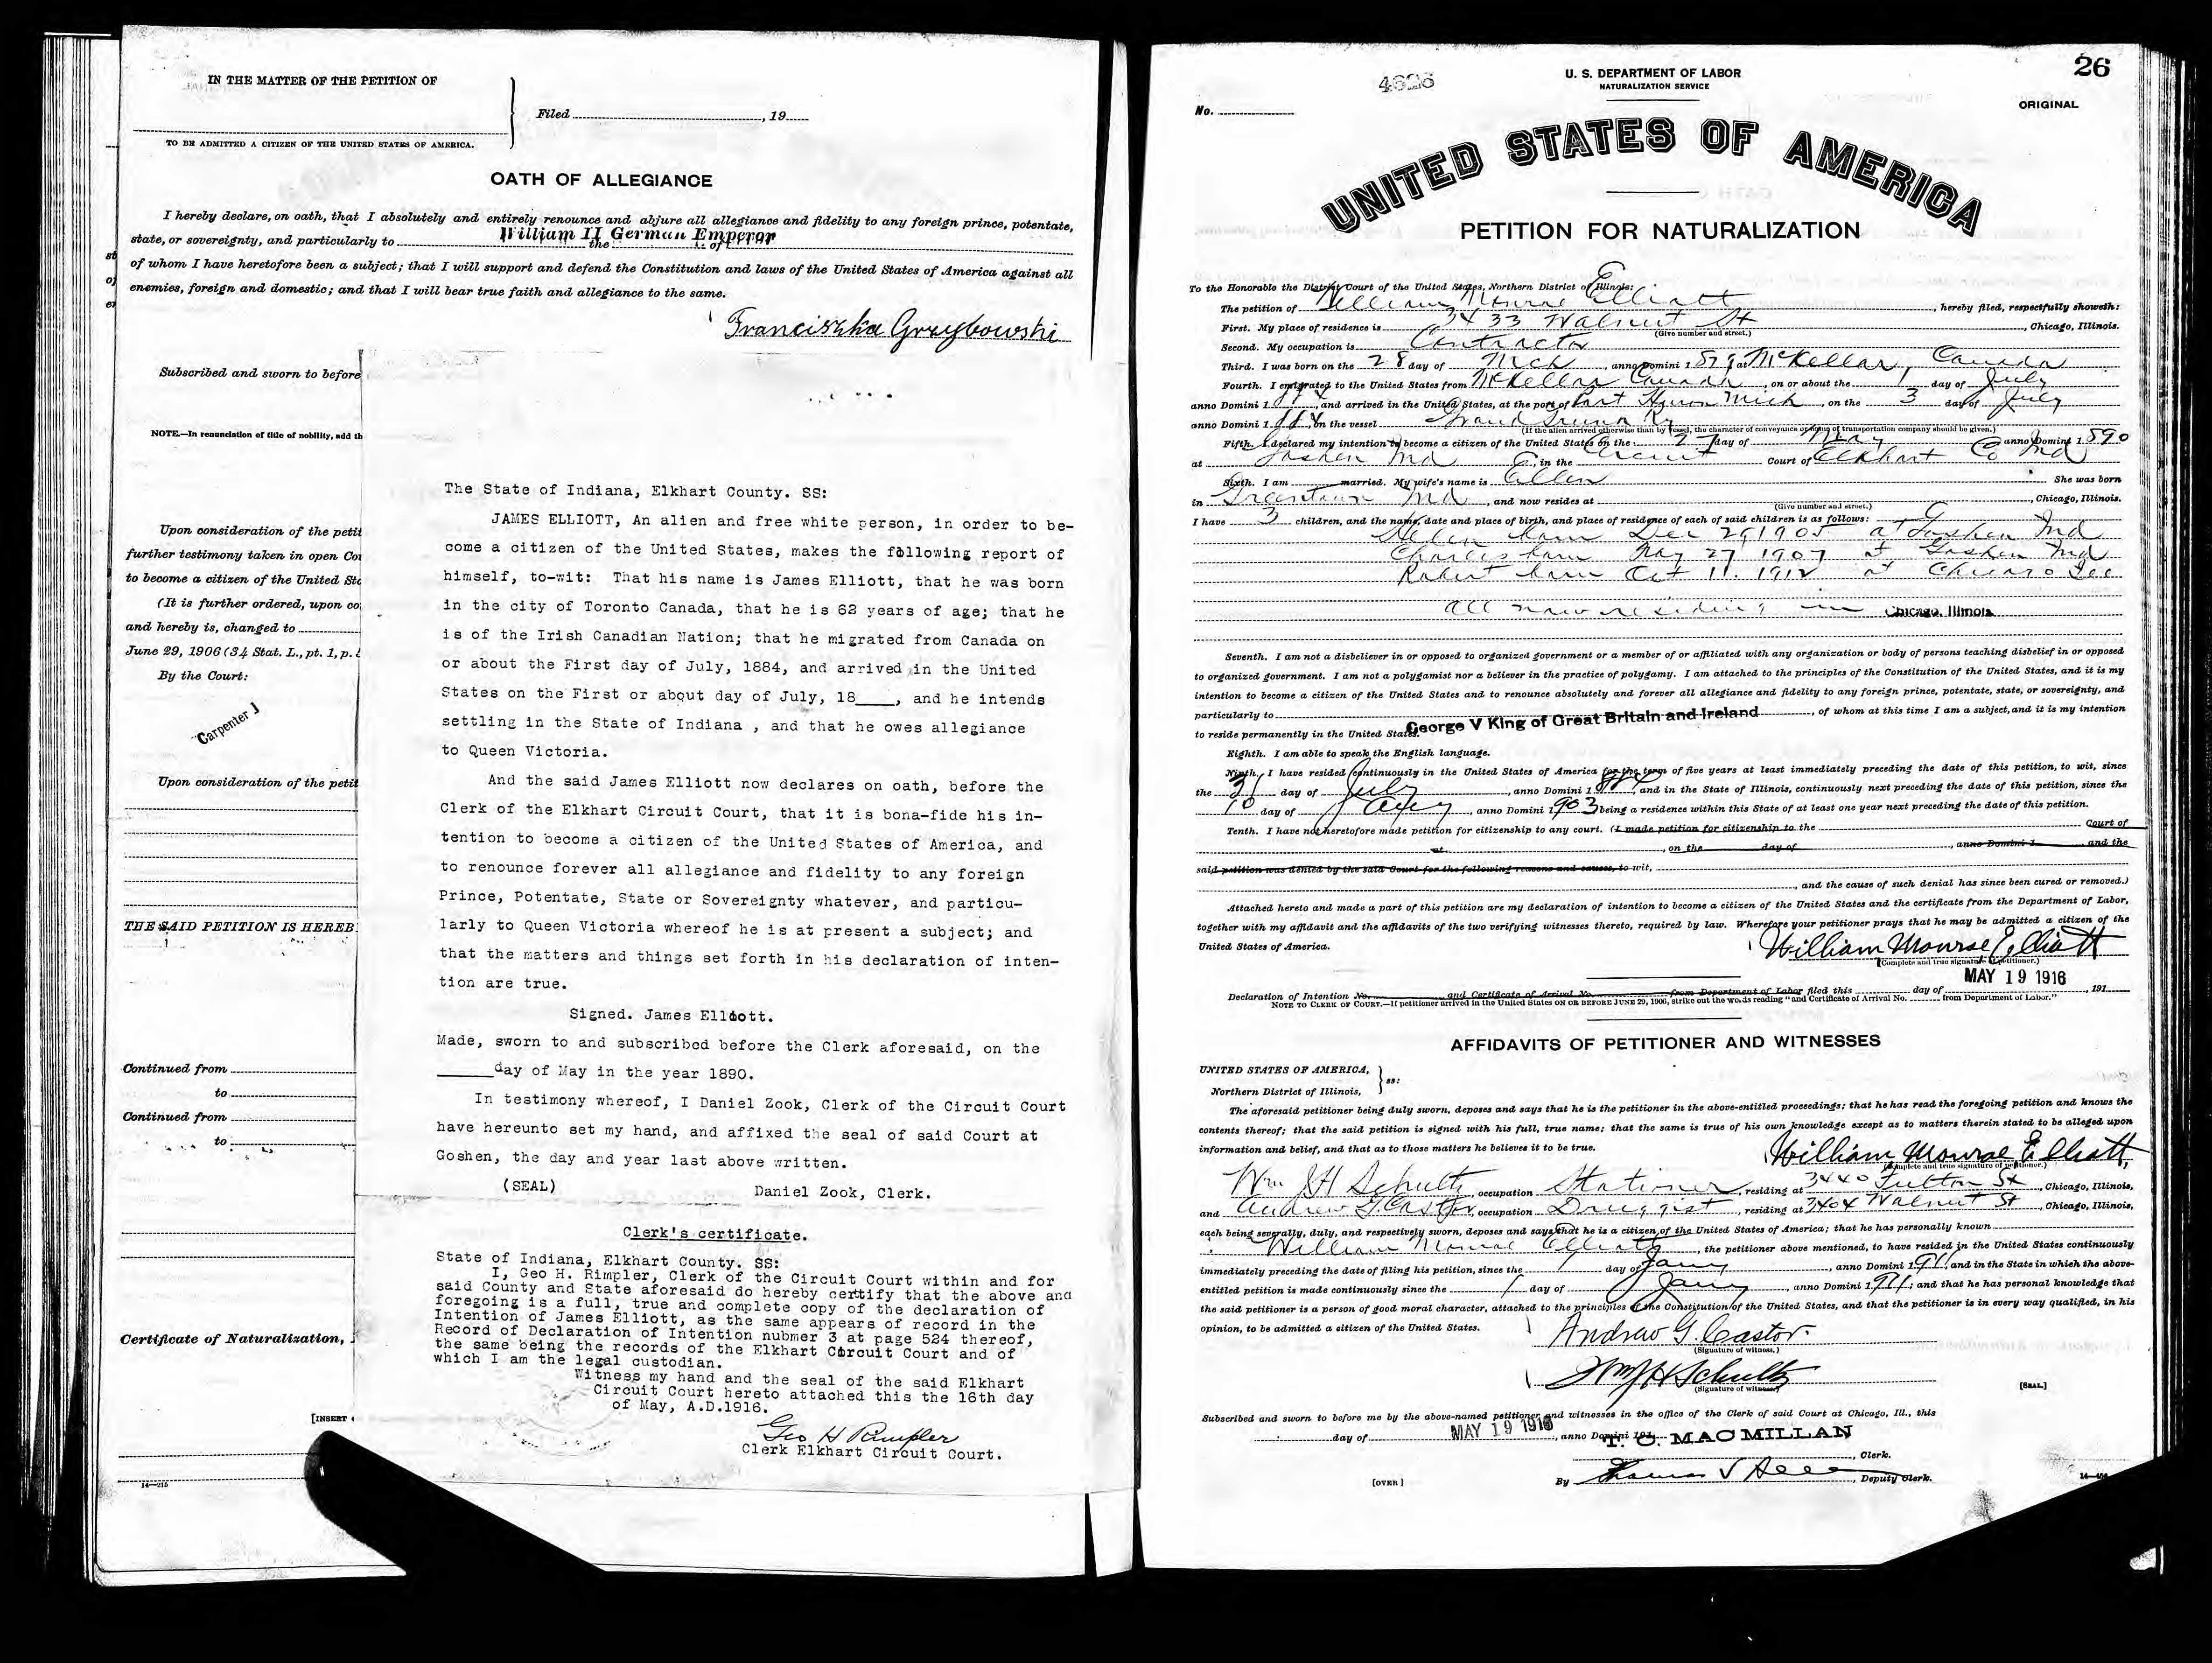 IN THE MATTER OF THE PETITION OF
Filed , 19
TO BE ADMITTED A CITIZEN OF THE UNITED STATES OF AMERICA.
OATH OF ALLEGIANCE
I hereby declare, on oath, that I absolutely and entirely renounce and abjure all allegiance and fidelity to any foreign prince, potentate,
state, or sovereignty, and particularly to William II German Emperor
the of
of whom I have heretofore been a subject; that I will support and defend the Constitution and laws of the United States of America against all
enemies, foreign and domestic; and that I will bear true faith and allegiance to the same.
Franciszka Grzybowski
Subscribed and sworn to before
NOTE.—In renunciation of title of nobility, add th
Upon consideration of the petit
further testimony taken in open Co
to become a citizen of the United Sta
(It is further ordered, upon co
and hereby is, changed to
June 29, 1906 (34 Stat. L., pt. 1, p.
By the Court:
Carpenter J
Upon consideration of the petit
THE SAID PETITION IS HEREB
Continued from
to
Continued from
to
Certificate of Naturalization,
[INSERT
14—215
The State of Indiana, Elkhart County. SS:
JAMES ELLIOTT, An alien and free white person, in order to be-
come a citizen of the United States, makes the following report of
himself, to-wit: That his name is James Elliott, that he was born
in the city of Toronto Canada, that he is 62 years of age; that he
is of the Irish Canadian Nation; that he migrated from Canada on
or about the First day of July, 1884, and arrived in the United
States on the First or about day of July, 18____, and he intends
settling in the State of Indiana , and that he owes allegiance
to Queen Victoria.
And the said James Elliott now declares on oath, before the
Clerk of the Elkhart Circuit Court, that it is bona-fide his in-
tention to become a citizen of the United States of America, and
to renounce forever all allegiance and fidelity to any foreign
Prince, Potentate, State or Sovereignty whatever, and particu-
larly to Queen Victoria whereof he is at present a subject; and
that the matters and things set forth in his declaration of inten-
tion are true.
Signed. James Elliott.
Made, sworn to and subscribed before the Clerk aforesaid, on the
_____day of May in the year 1890.
In testimony whereof, I Daniel Zook, Clerk of the Circuit Court
have hereunto set my hand, and affixed the seal of said Court at
Goshen, the day and year last above written.
(SEAL) Daniel Zook, Clerk.
Clerk's certificate.
State of Indiana, Elkhart County. SS:
I, Geo H. Rimpler, Clerk of the Circuit Court within and for
said County and State aforesaid do hereby certtify that the above and
foregoing is a full, true and complete copy of the declaration of
Intention of James Elliott, as the same appears of record in the
Record of Declaration of Intention nubmer 3 at page 524 thereof,
the same being the records of the Elkhart Circuit Court and of
which I am the legal custodian.
Witness my hand and the seal of the said Elkhart
Circuit Court hereto attached this the 16th day
of May, A.D.1916.
Geo H Rimpler
Clerk Elkhart Circuit Court.
26
4626
U. S. DEPARTMENT OF LABOR
NATURALIZATION SERVICE
No.
ORIGINAL
UNITED STATES OF AMERICA
PETITION FOR NATURALIZATION
To the Honorable the District Court of the United States, Northern District of Illinois:
The petition of William Monroe Elliott, hereby filed, respectfully showeth:
First. My place of residence is 3433 Walnut St, Chicago, Illinois.
(Give number and street.)
Second. My occupation is Contractor
Third. I was born on the 28 day of Mch, anno Domini 1879, at McKellar, Canada
Fourth. I emigrated to the United States from McKellar Canada, on or about the 1 day of July
anno Domini 1884, and arrived in the United States, at the port of Port Huron Mich, on the 3 day of July
anno Domini 1884, on the vessel Grand Trunk Ry
(If the alien arrived otherwise than by vessel, the character of conveyance or name of transportation company should be given.)
Fifth. I declared my intention to become a citizen of the United States on the 27 day of May anno Domini 1890
at Goshen Ind, in the Circuit Court of Elkhart Co Ind
Sixth. I am married. My wife's name is Ellen She was born
in Greentown Ind, and now resides at , Chicago, Illinois.
(Give number and street.)
I have 3 children, and the name, date and place of birth, and place of residence of each of said children is as follows:
Helen born Dec 29 1905 at Goshen Ind
Charles born May 27 1907 at Goshen Ind
Robert born Oct 11. 1912 at Chicago Ill
all now residing in Chicago, Illinois
Seventh. I am not a disbeliever in or opposed to organized government or a member of or affiliated with any organization or body of persons teaching disbelief in or opposed
to organized government. I am not a polygamist nor a believer in the practice of polygamy. I am attached to the principles of the Constitution of the United States, and it is my
intention to become a citizen of the United States and to renounce absolutely and forever all allegiance and fidelity to any foreign prince, potentate, state, or sovereignty, and
particularly to George V King of Great Britain and Ireland, of whom at this time I am a subject, and it is my intention
to reside permanently in the United States.
Eighth. I am able to speak the English language.
Ninth. I have resided continuously in the United States of America for the term of five years at least immediately preceding the date of this petition, to wit, since
the 3 day of July, anno Domini 1884, and in the State of Illinois, continuously next preceding the date of this petition, since the
10 day of , anno Domini 1903 being a residence within this State of at least one year next preceding the date of this petition.
Tenth. I have not heretofore made petition for citizenship to any court. (I made petition for citizenship to the Court of
at , on the day of , anno Domini 1 and the
said petition was denied by the said Court for the following reasons and causes, to wit,
, and the cause of such denial has since been cured or removed.)
Attached hereto and made a part of this petition are my declaration of intention to become a citizen of the United States and the certificate from the Department of Labor,
together with my affidavit and the affidavits of the two verifying witnesses thereto, required by law. Wherefore your petitioner prays that he may be admitted a citizen of the
United States of America.
William Monroe Elliott
(Complete and true signature of petitioner.)
MAY 19 1916
Declaration of Intention No. and Certificate of Arrival No. from Department of Labor filed this day of , 191
NOTE TO CLERK OF COURT.—If petitioner arrived in the United States ON OR BEFORE JUNE 29, 1906, strike out the words reading "and Certificate of Arrival No. from Department of Labor."
AFFIDAVITS OF PETITIONER AND WITNESSES
UNITED STATES OF AMERICA,
ss:
Northern District of Illinois,
The aforesaid petitioner being duly sworn, deposes and says that he is the petitioner in the above-entitled proceedings; that he has read the foregoing petition and knows the
contents thereof; that the said petition is signed with his full, true name; that the same is true of his own knowledge except as to matters therein stated to be alleged upon
information and belief, and that as to those matters he believes it to be true.
William Monroe Elliott
(Complete and true signature of petitioner.)
Wm J H Schultz, occupation Stationer, residing at 3440 Fulton St, Chicago, Illinois,
and Andrew G. Castor, occupation Druggist, residing at 3404 Walnut St, Chicago, Illinois,
each being severally, duly, and respectively sworn, deposes and says that he is a citizen of the United States of America; that he has personally known
William Monroe Elliott, the petitioner above mentioned, to have resided in the United States continuously
immediately preceding the date of filing his petition, since the 1 day of Jany, anno Domini 1911, and in the State in which the above-
entitled petition is made continuously since the 1 day of Jany, anno Domini 1911; and that he has personal knowledge that
the said petitioner is a person of good moral character, attached to the principles of the Constitution of the United States, and that the petitioner is in every way qualified, in his
opinion, to be admitted a citizen of the United States.
Andrew G. Castor.
(Signature of witness.)
Wm J H Schultz
(Signature of witness)
[SEAL]
Subscribed and sworn to before me by the above-named petitioner and witnesses in the office of the Clerk of said Court at Chicago, Ill., this
day of MAY 19 1916, anno Domini 191
T. C. MACMILLAN
, Clerk.
[OVER]
By , Deputy Clerk.